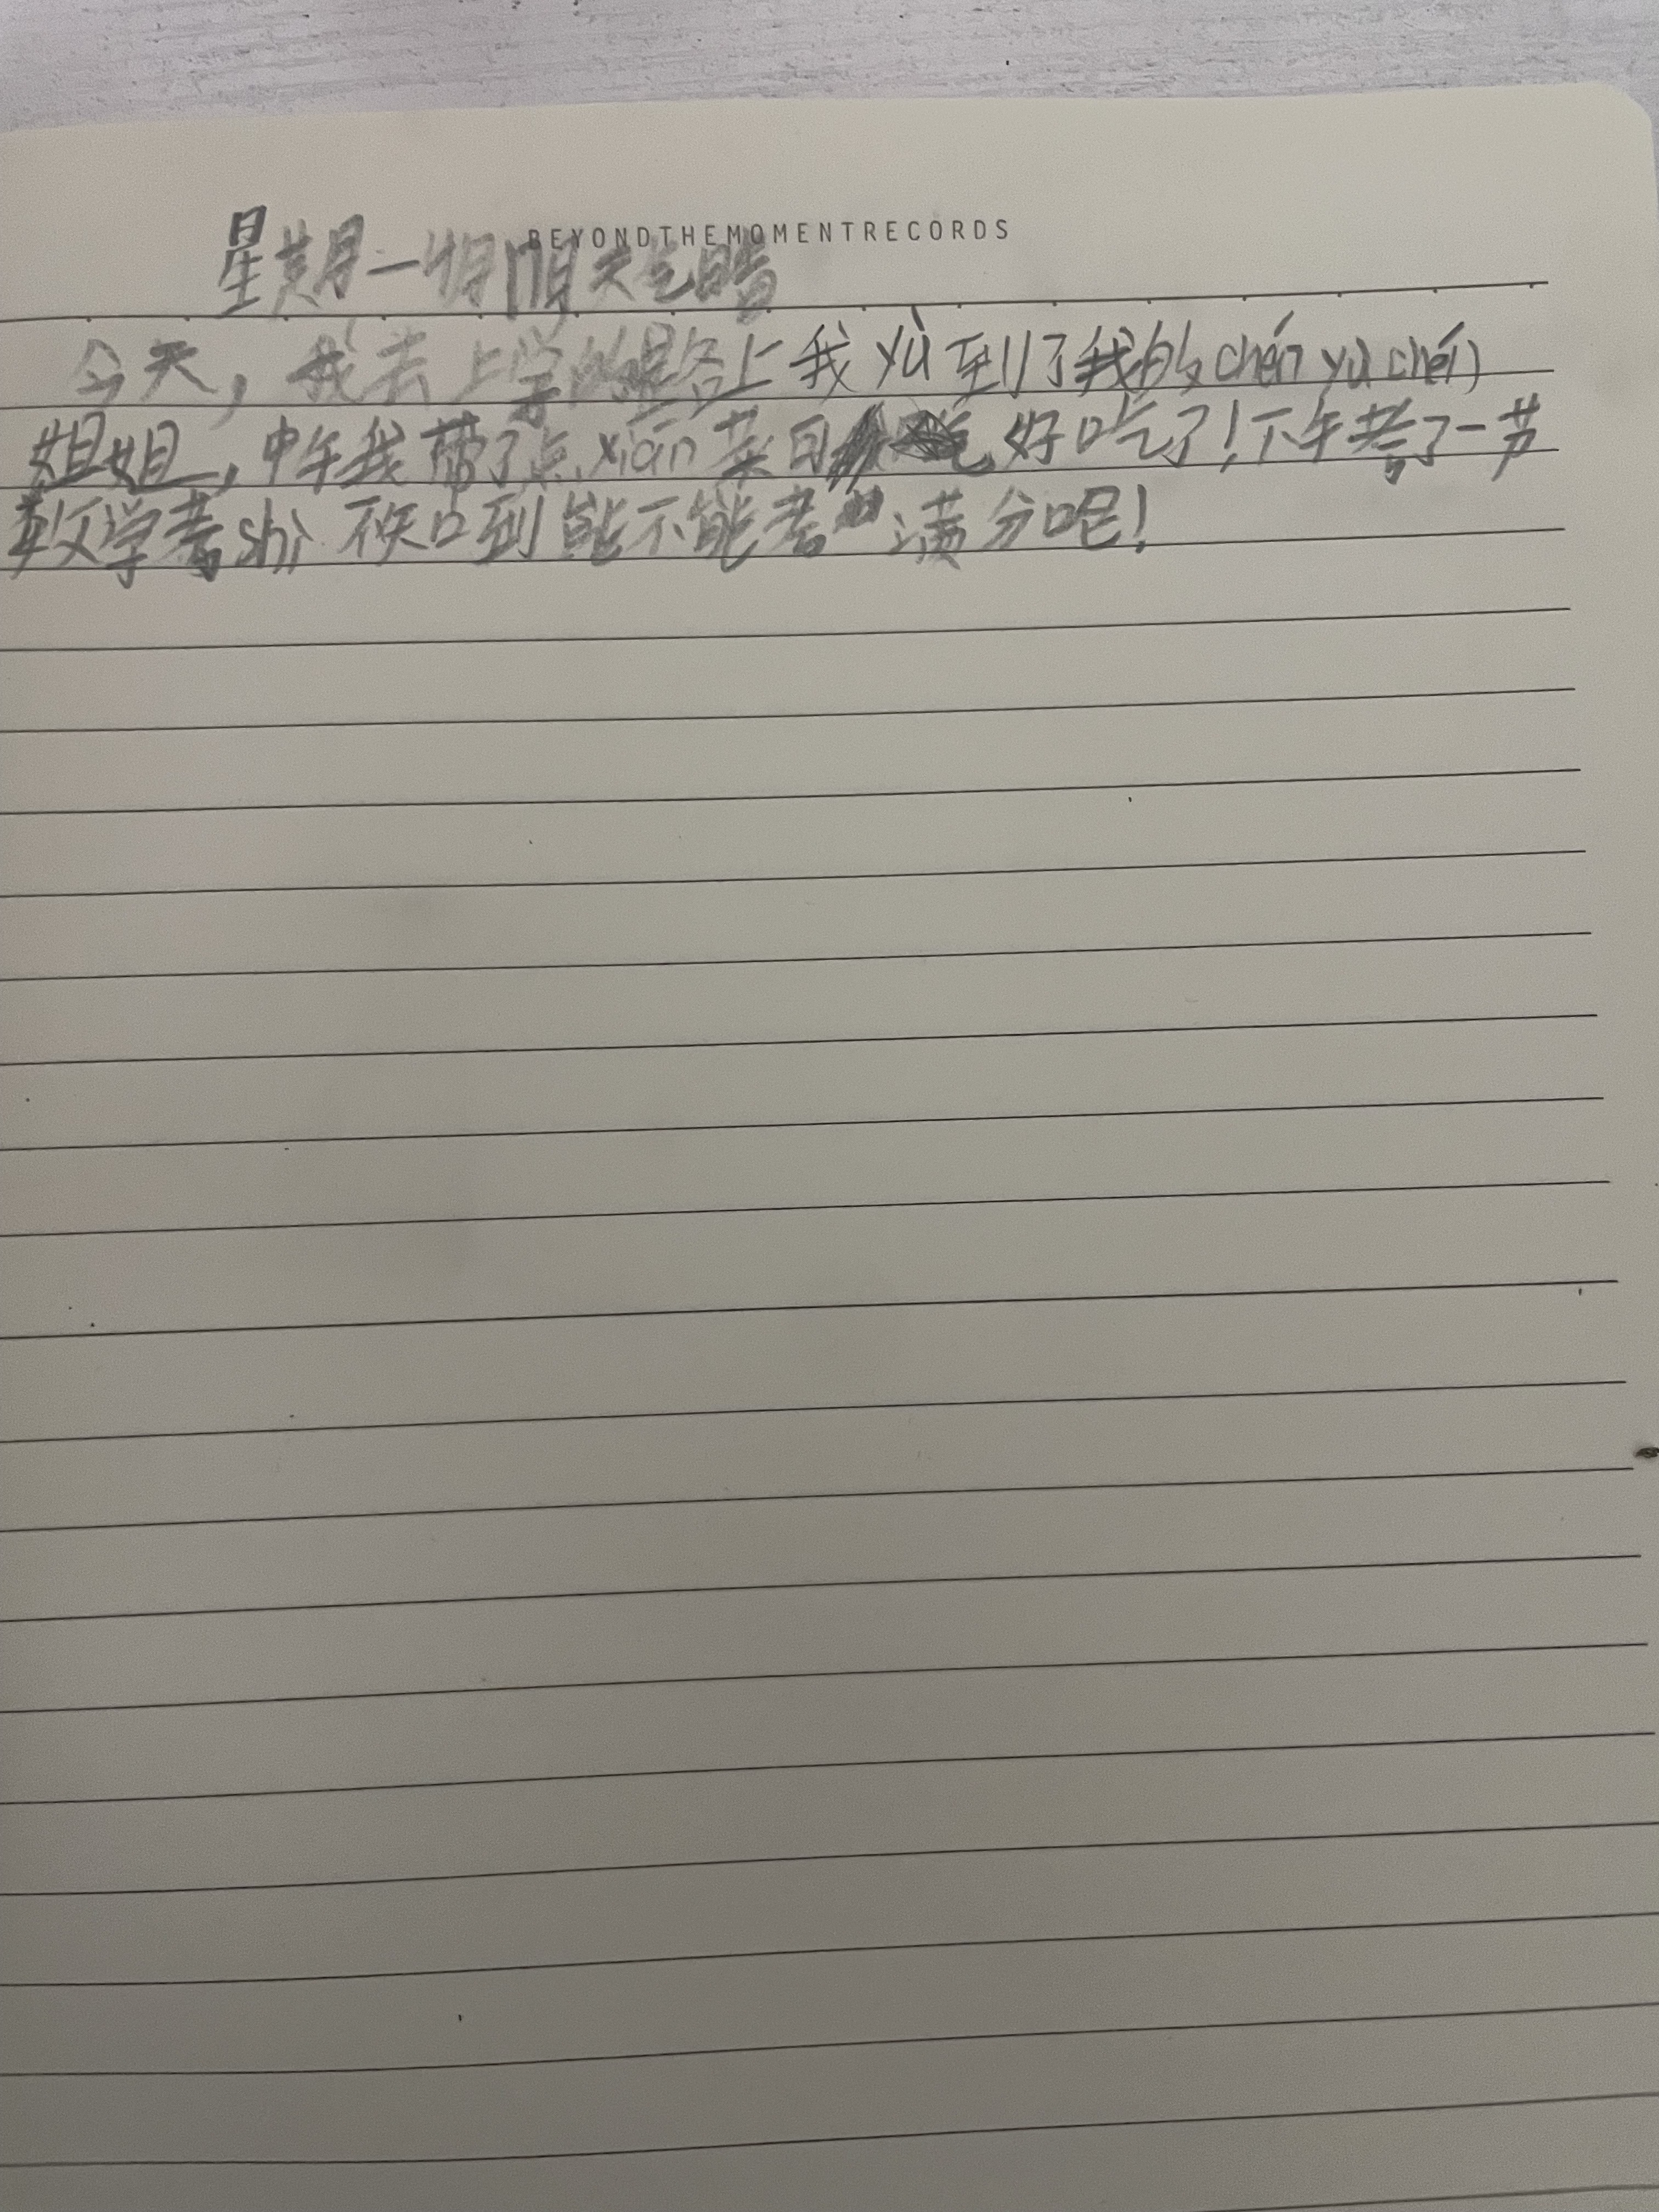 BEYONDTHEMOMENTRECORDS
星期一 17日 天气晴
今天，我去上学的路上我yù到了我的chén yù chén
姐姐，中午我带了点xián菜可好吃了！下午考了一节
数学考shì 不知到能不能考满分呢！